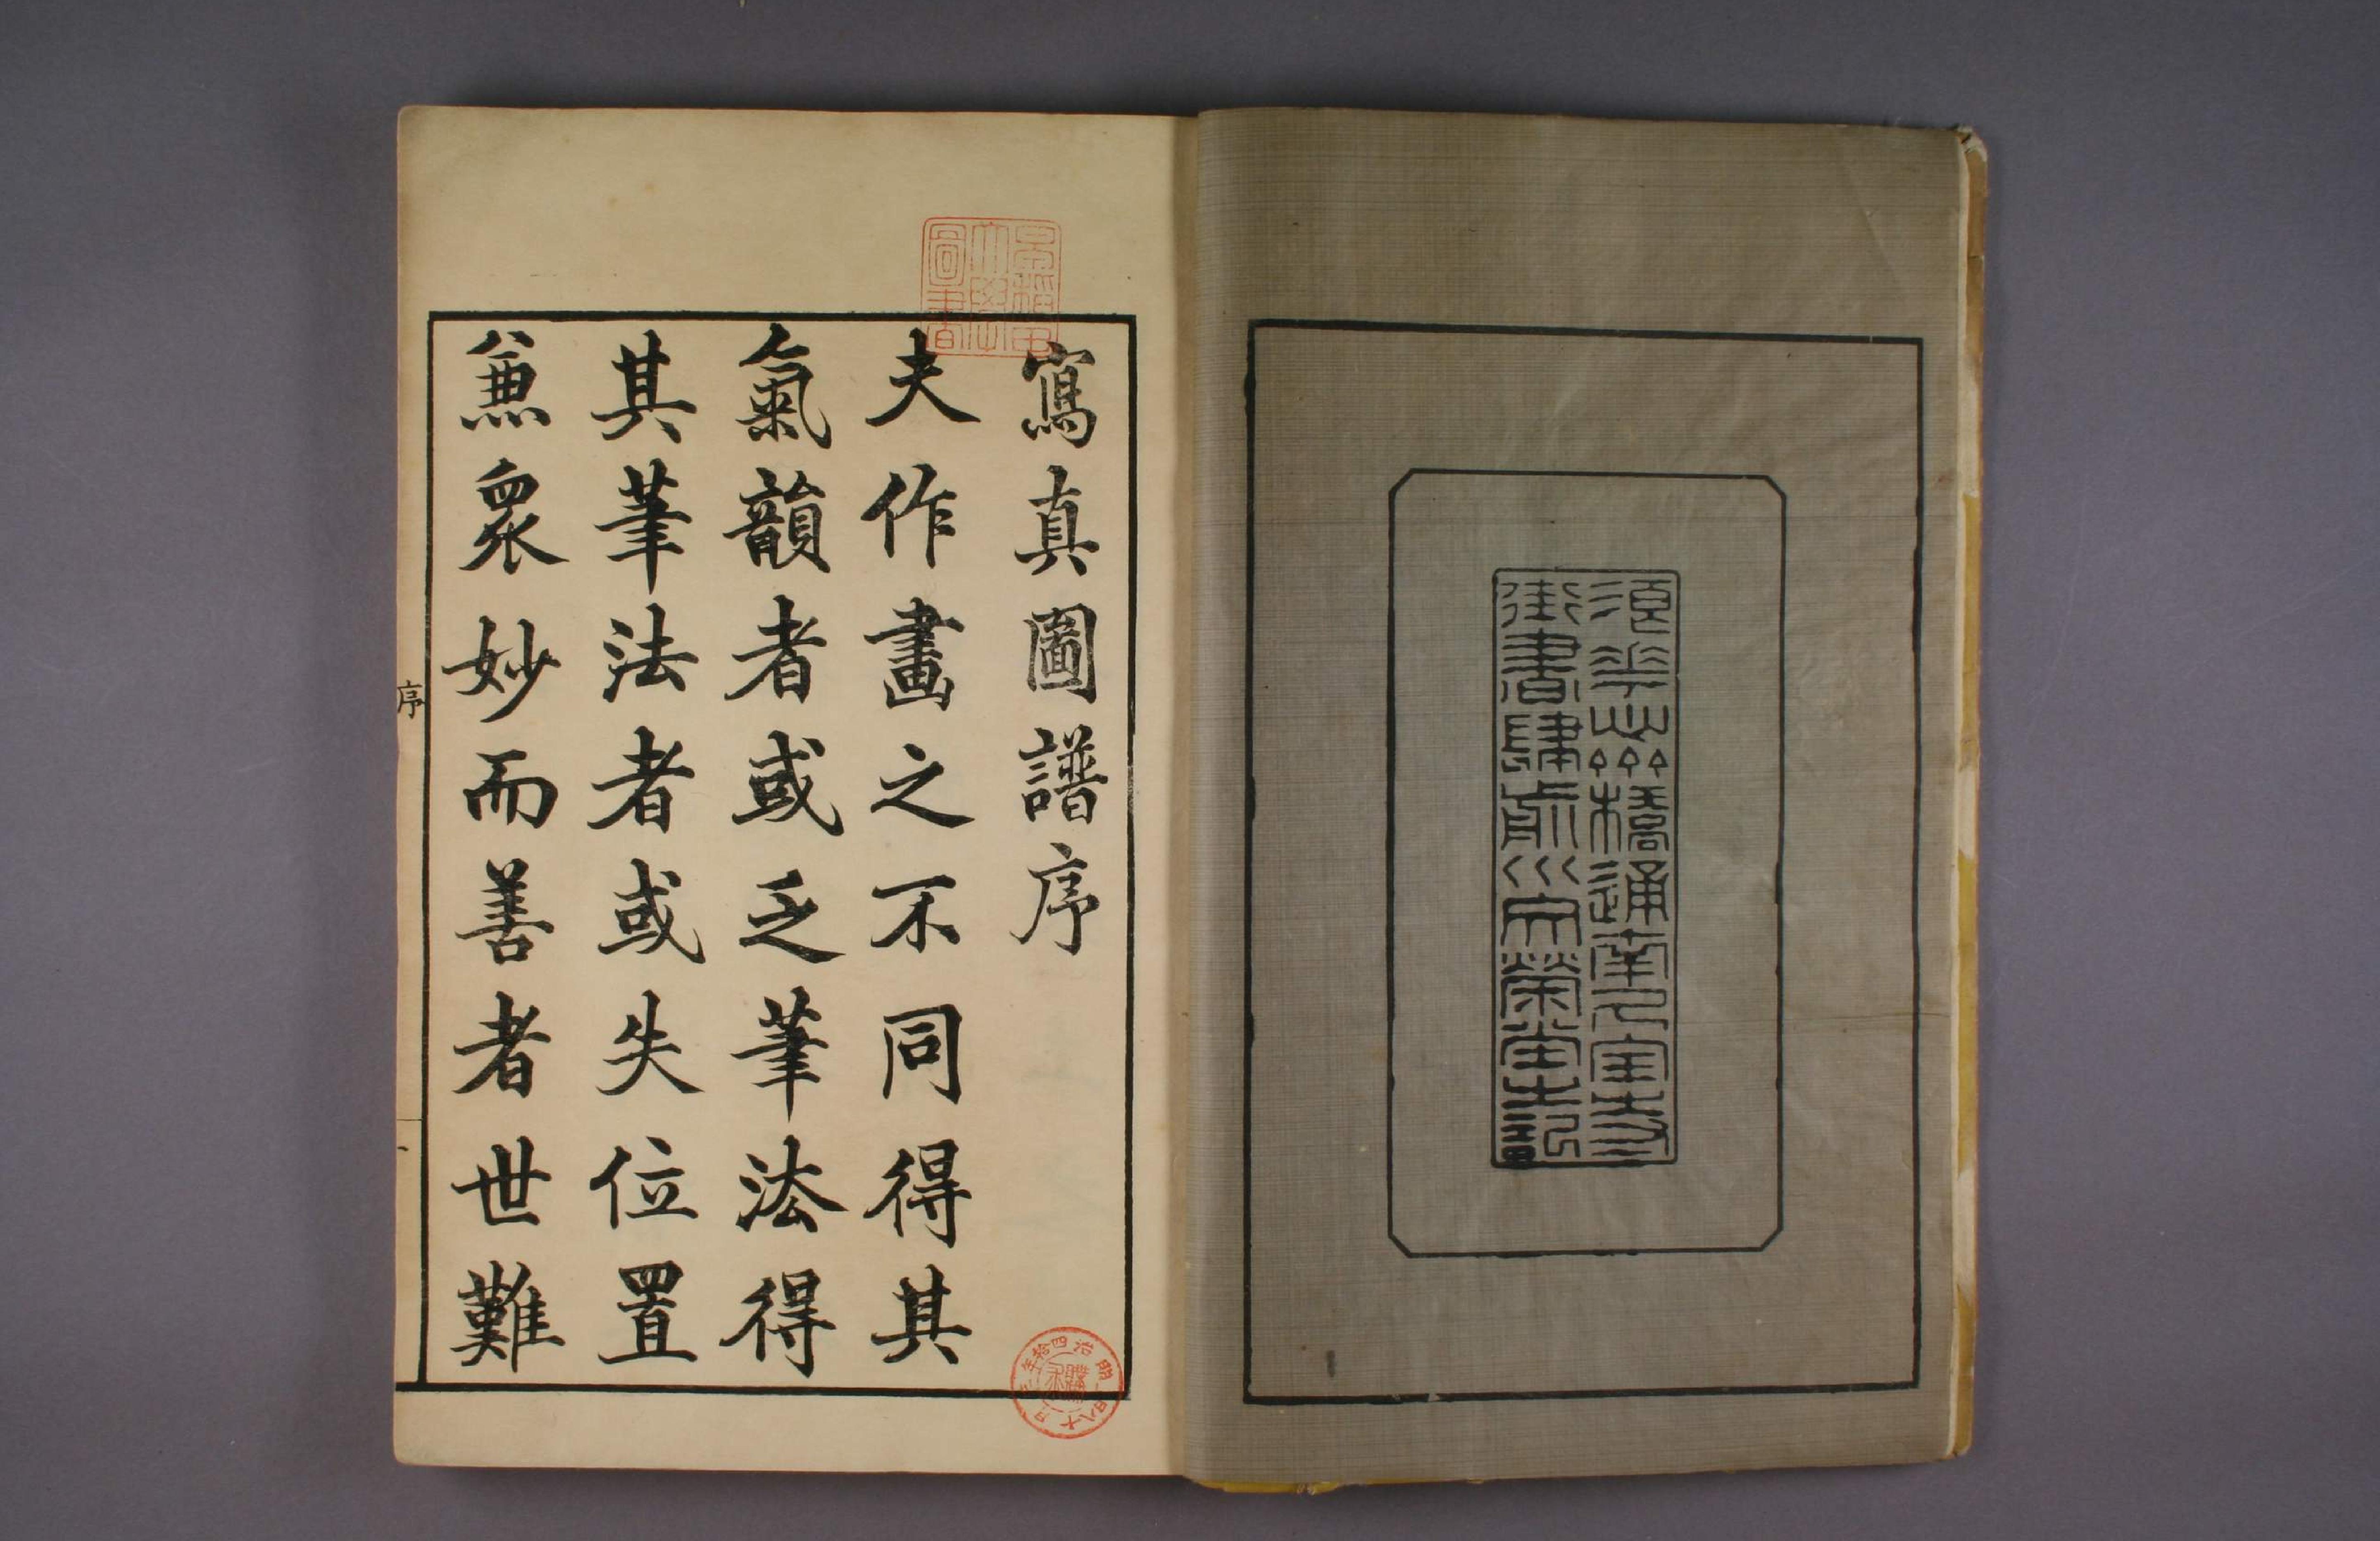 浪華心齋橋通南久寶寺
街書肆前川文榮堂記
早稻田
大學
圖書
寫真圖譜序
夫作畫之不同得其
氣韻者或乏筆法得
其筆法者或失位置
兼眾妙而善者世難
序